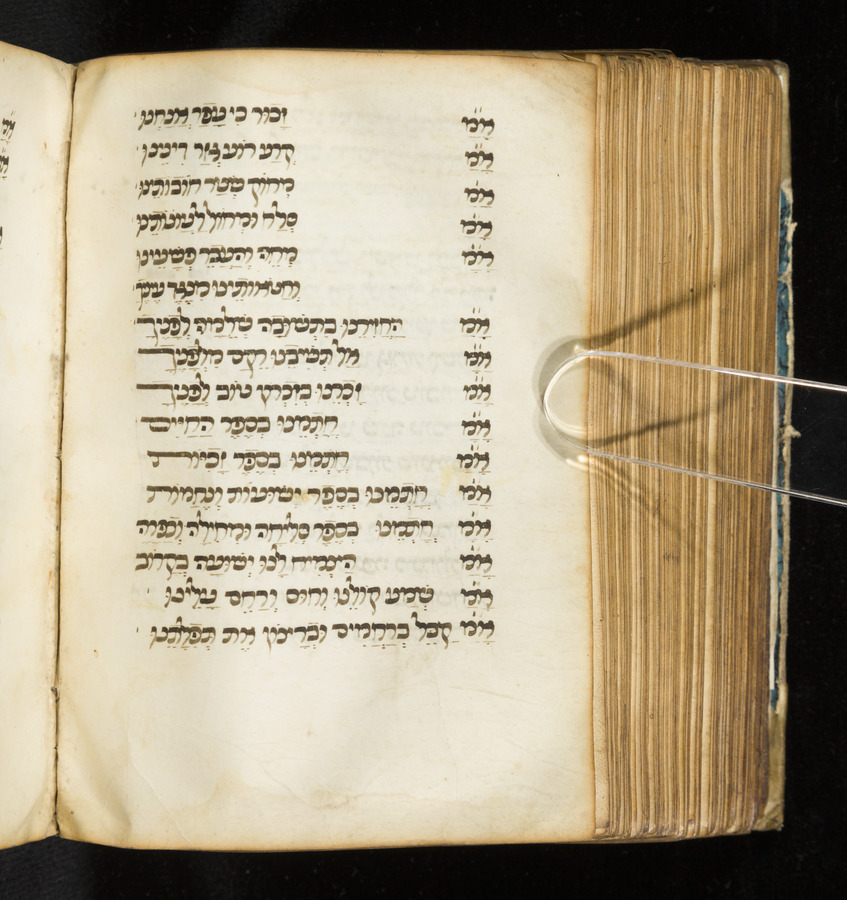 א״מ זכור כי עפר אנחנו
א״מ קרע רוע גזר דיננו
א״מ מחוק שטר חובותינו
א״מ סלח ומחול לעונותינו
א״מ מחה והעבר פשעינו
וחטאותינו מנגד עינך
א״מ החזירנו בתשובה שלמה לפניך
א״מ אל תשיבנו רקם מלפניך
א״מ זכרנו בזכרון טוב לפניך
א״מ חתמנו בספר החיים
א״מ חתמנו בספר זכיות
א״מ חתמנו בספר ישועות ונחמות
א״מ חתמנו בספר סליחה ומחילה וכפרה
א״מ הצמיח לנו ישועה בקרוב
א״מ שמע קולנו וחוס ורחם עלינו
א״מ קבל ברחמים וברצון את תפלתנו